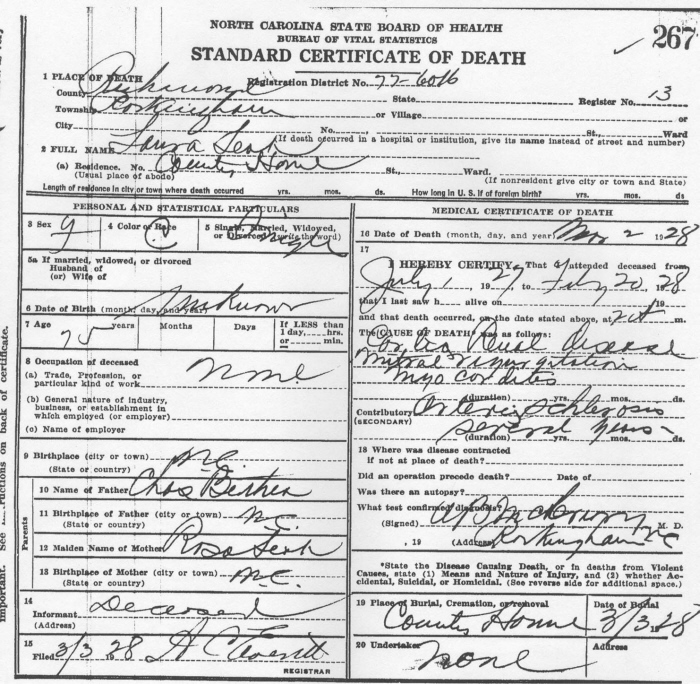 NORTH CAROLINA STATE BOARD OF HEALTH
BUREAU OF VITAL STATISTICS
STANDARD CERTIFICATE OF DEATH
267
1 PLACE OF DEATH
Registration District No. 77-6016
County Richmond State Register No. 13
Township Rockingham or Village or
City No. St., Ward
(If death occurred in a hospital or institution, give its name instead of street and number)
2 FULL NAME Laura Leak
(a) Residence. No. County Home St., Ward.
(Usual place of abode) (If nonresident give city or town and State)
Length of residence in city or town where death occurred yrs. mos. ds. How long in U. S. if of foreign birth? yrs. mos. ds
PERSONAL AND STATISTICAL PARTICULARS
3 Sex 4 Color or Race C 5 Single, Married, Widowed, or Divorced (write the word) Single
5a If married, widowed, or divorced
Husband of
(or) Wife of
6 Date of Birth (month, day, and year) Unknown
7 Age 75 years Months Days If LESS than
1 day, hrs.
or min.
8 Occupation of deceased
(a) Trade, Profession, or
particular kind of work None
(b) General nature of industry,
business, or establishment in
which employed (or employer)
(c) Name of employer
9 Birthplace (city or town) N.C.
(State or country)
Parents
10 Name of Father Chas
11 Birthplace of Father (city or town) N.C.
(State or country)
12 Maiden Name of Mother Rosa Leak
13 Birthplace of Mother (city or town) N.C.
(State or country)
14
Informant Deceased
(Address)
15
Filed 3/3 1928 H C Everett
REGISTRAR
MEDICAL CERTIFICATE OF DEATH
16 Date of Death (month, day, and year) Mar 2 1928
17
I HEREBY CERTIFY, That I attended deceased from
July 1, 1927, to Feb 20, 1928
that I last saw h alive on , 19
and that death occurred, on the date stated above, at m.
The CAUSE OF DEATH* was as follows:
Cardio Renal Disease
Mitral regurgitation
Myocarditis
(duration) yrs. mos. ds.
Contributory Arterio Schlerosis
(SECONDARY)
several years
(duration) yrs. mos. ds.
18 Where was disease contracted
if not at place of death?
Did an operation precede death? Date of
Was there an autopsy?
What test confirmed diagnosis?
(Signed) M. D.
, 19 (Address) Rockingham NC
*State the Disease Causing Death, or in deaths from Violent
Causes, state (1) Means and Nature of Injury, and (2) whether Ac-
cidental, Suicidal, or Homicidal. (See reverse side for additional space.)
19 Place of Burial, Cremation, or removal Date of Burial
County Home 3/3 1928
20 Undertaker Address
none
important. See ructions on back of certificate.